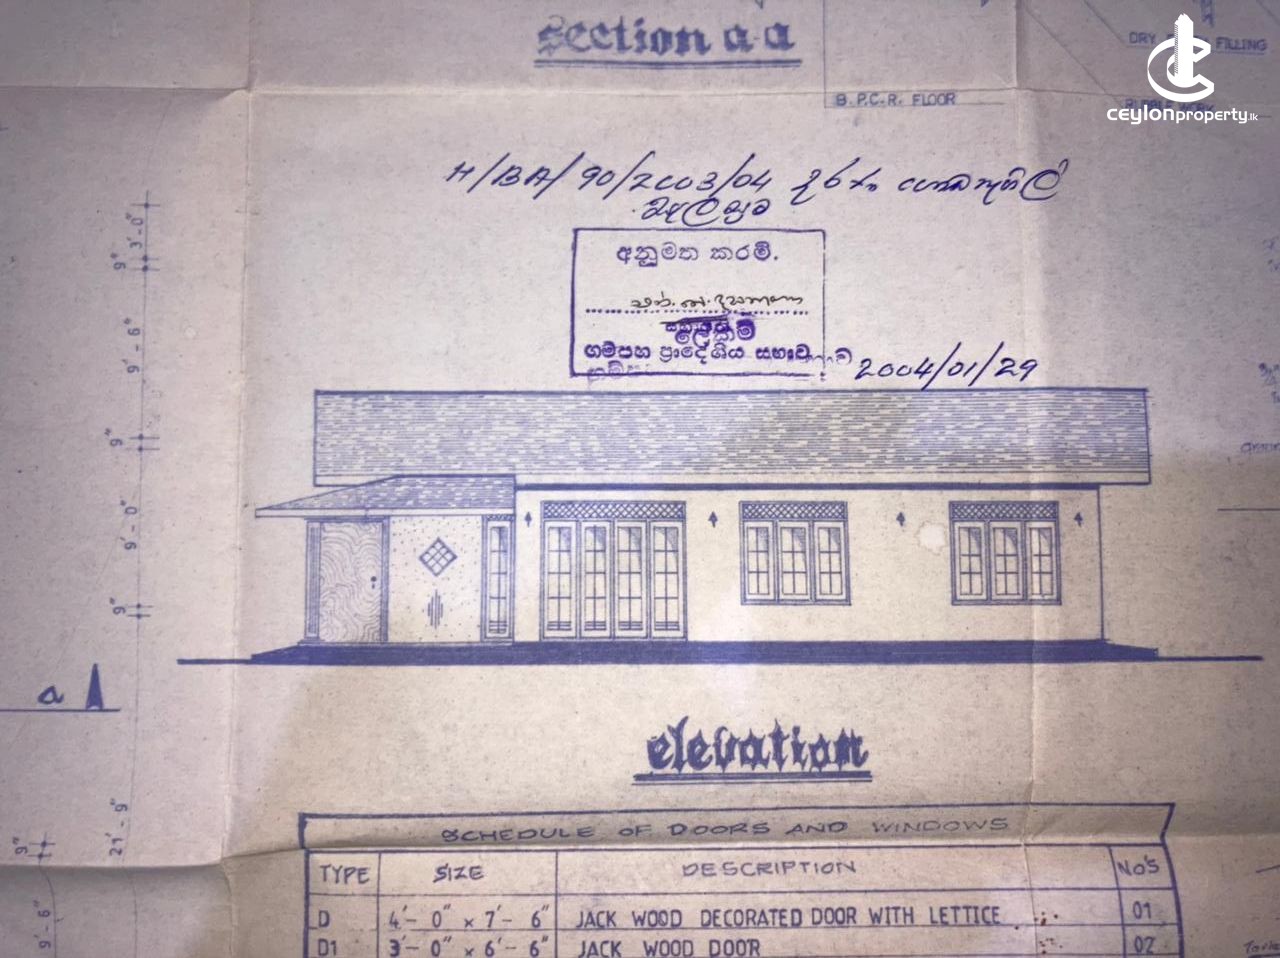 section a-a
DRY FILLING
B.P.C.R. FLOOR
ceylonproperty.lk
H/BA/90/2003/04
අනුමත කරමි.
ලේකම්
ගම්පහ ප්‍රාදේශීය සභාව
2004/01/29
9" 3'-0"
9'-6"
9"
9'-0"
9"
a
21'-9"
9"
9'-6"
elevation
SCHEDULE OF DOORS AND WINDOWS
TYPE SIZE DESCRIPTION NO'S
D 4'-0" x 7'-6" JACK WOOD DECORATED DOOR WITH LETTICE 01
D1 3'-0" x 6'-6" JACK WOOD DOOR 02